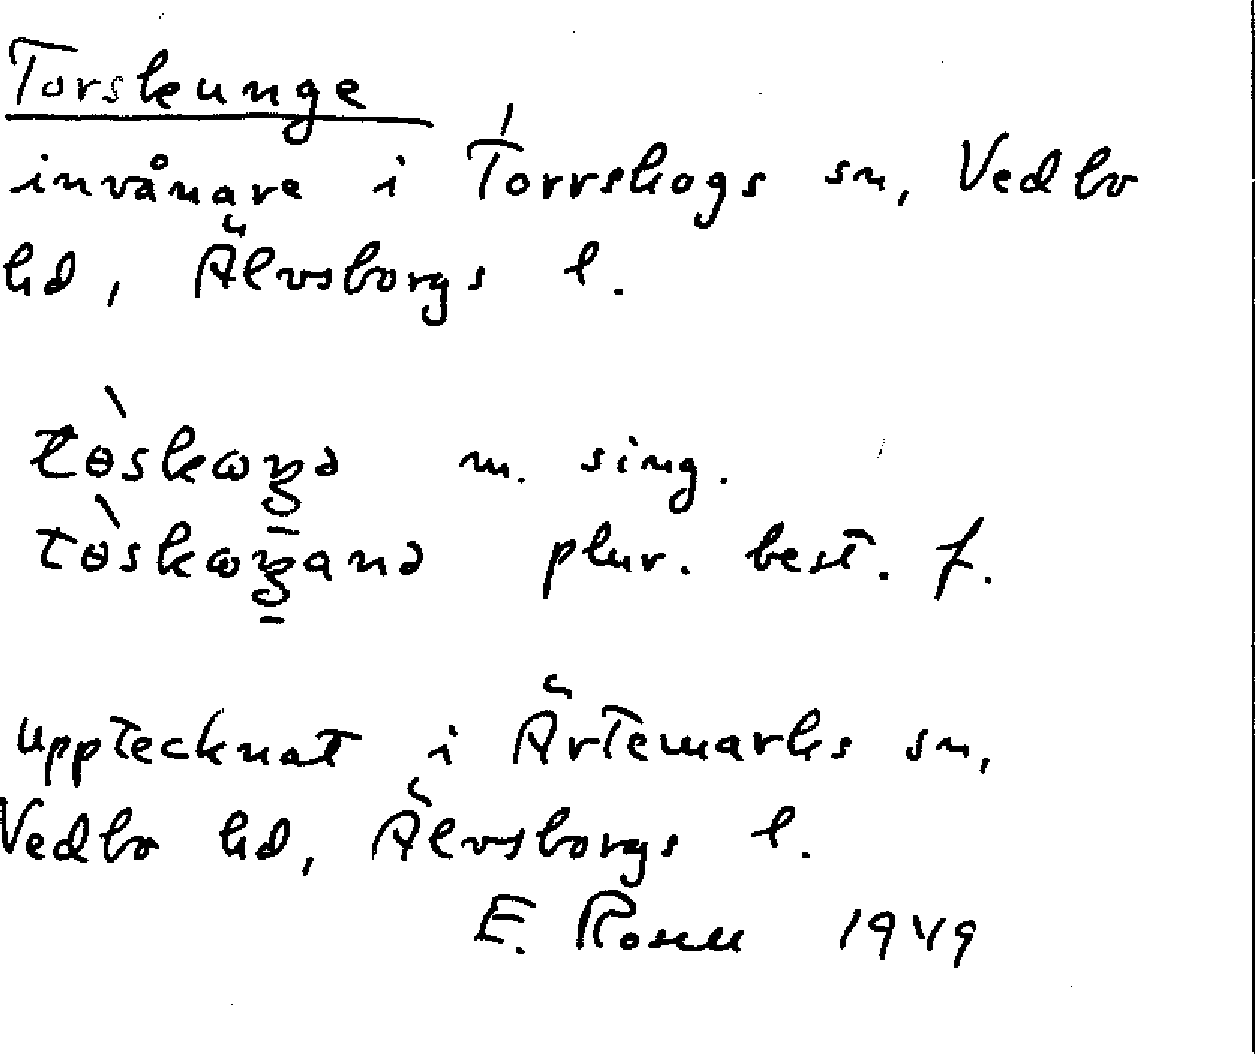 Torskunge
invånare i Torrskogs sn, Vedbo
hd, Älvsborgs l.
m. sing.
plur. best. f.
upptecknat i Ärtemarks sn,
Vedbo hd, Älvsborgs l.
E. 1949